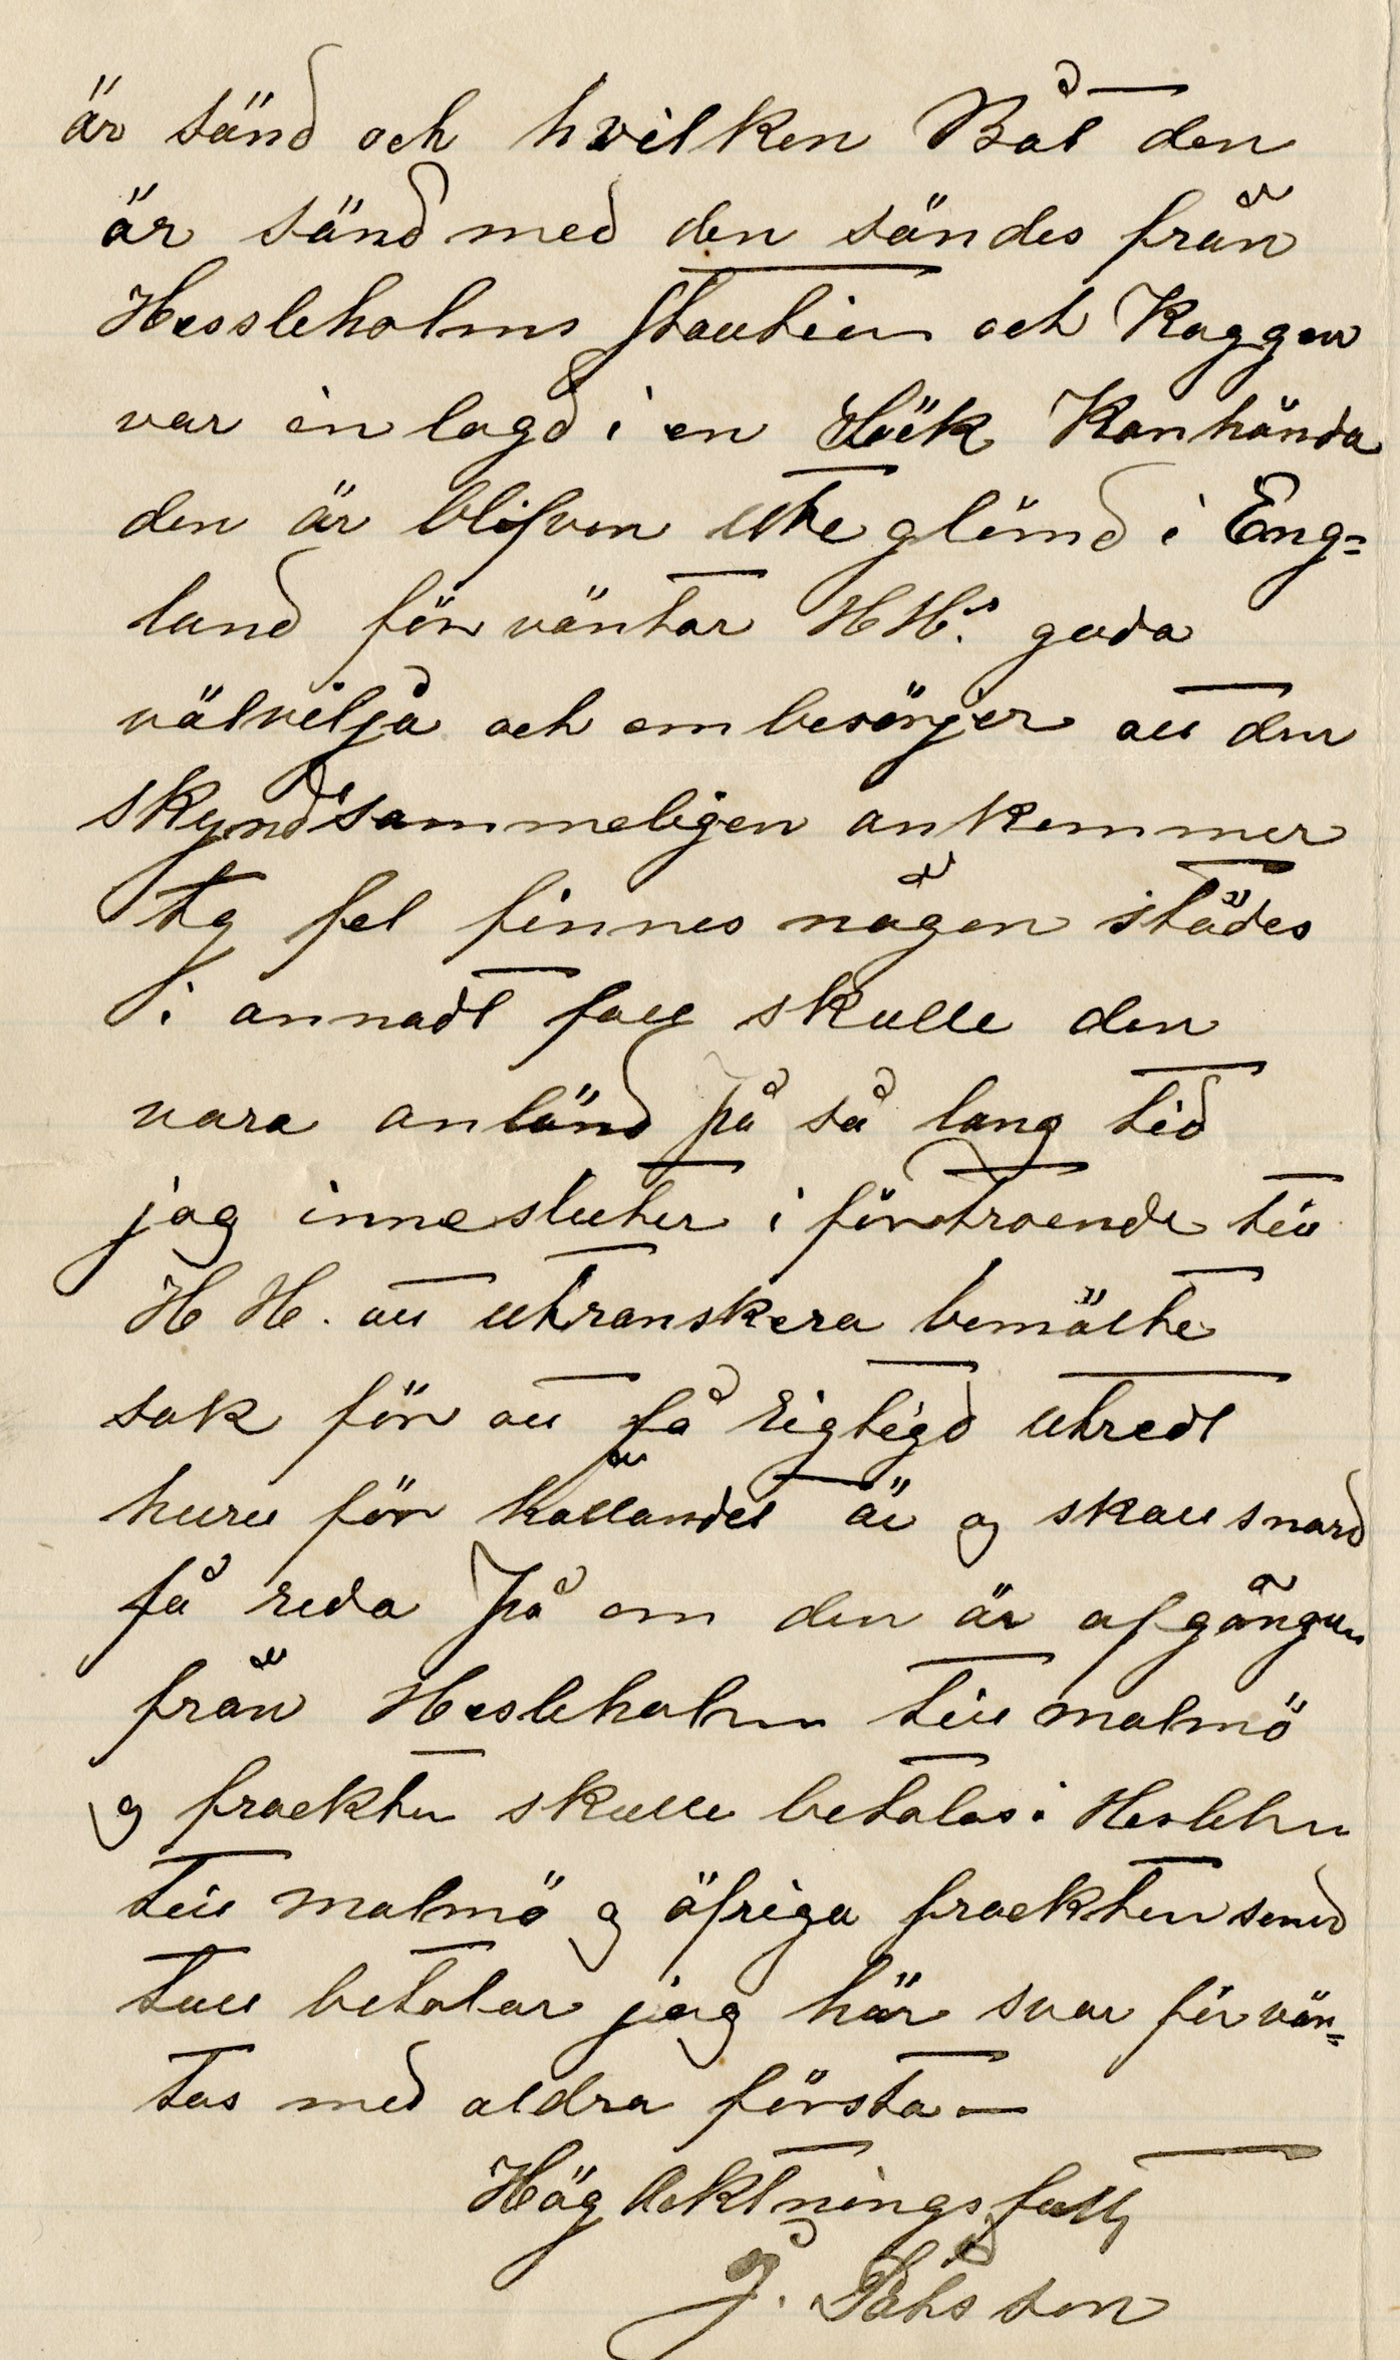 är sänd och hvilken Båt den
är sänd med den sändes från
Hessleholms Station och Kaggen
var inlagd i en Säck Kanhända
den är blifven uteglömd i Eng=
land förväntar HHs. goda
välvilja och ombesörjer att den
skyndsammeligen ankommer
ty fel finnes någon städes
i annadt fall skulle den
vara anländ på så lang tid
jag innesluter i förtroende till
H H. att utranskera bemälte
sak för att få rigtigd utredt
huru för hållandet är og skall snard
få reda på om den är afgången
från Hesleholm till malmö
og frackten skulle betalas i Heslehm
till malmö og öfriga frackten
tull betalar jag här svar förvän=
tas med aldra första —
Hög Acktningsfullt
J. Pålsson